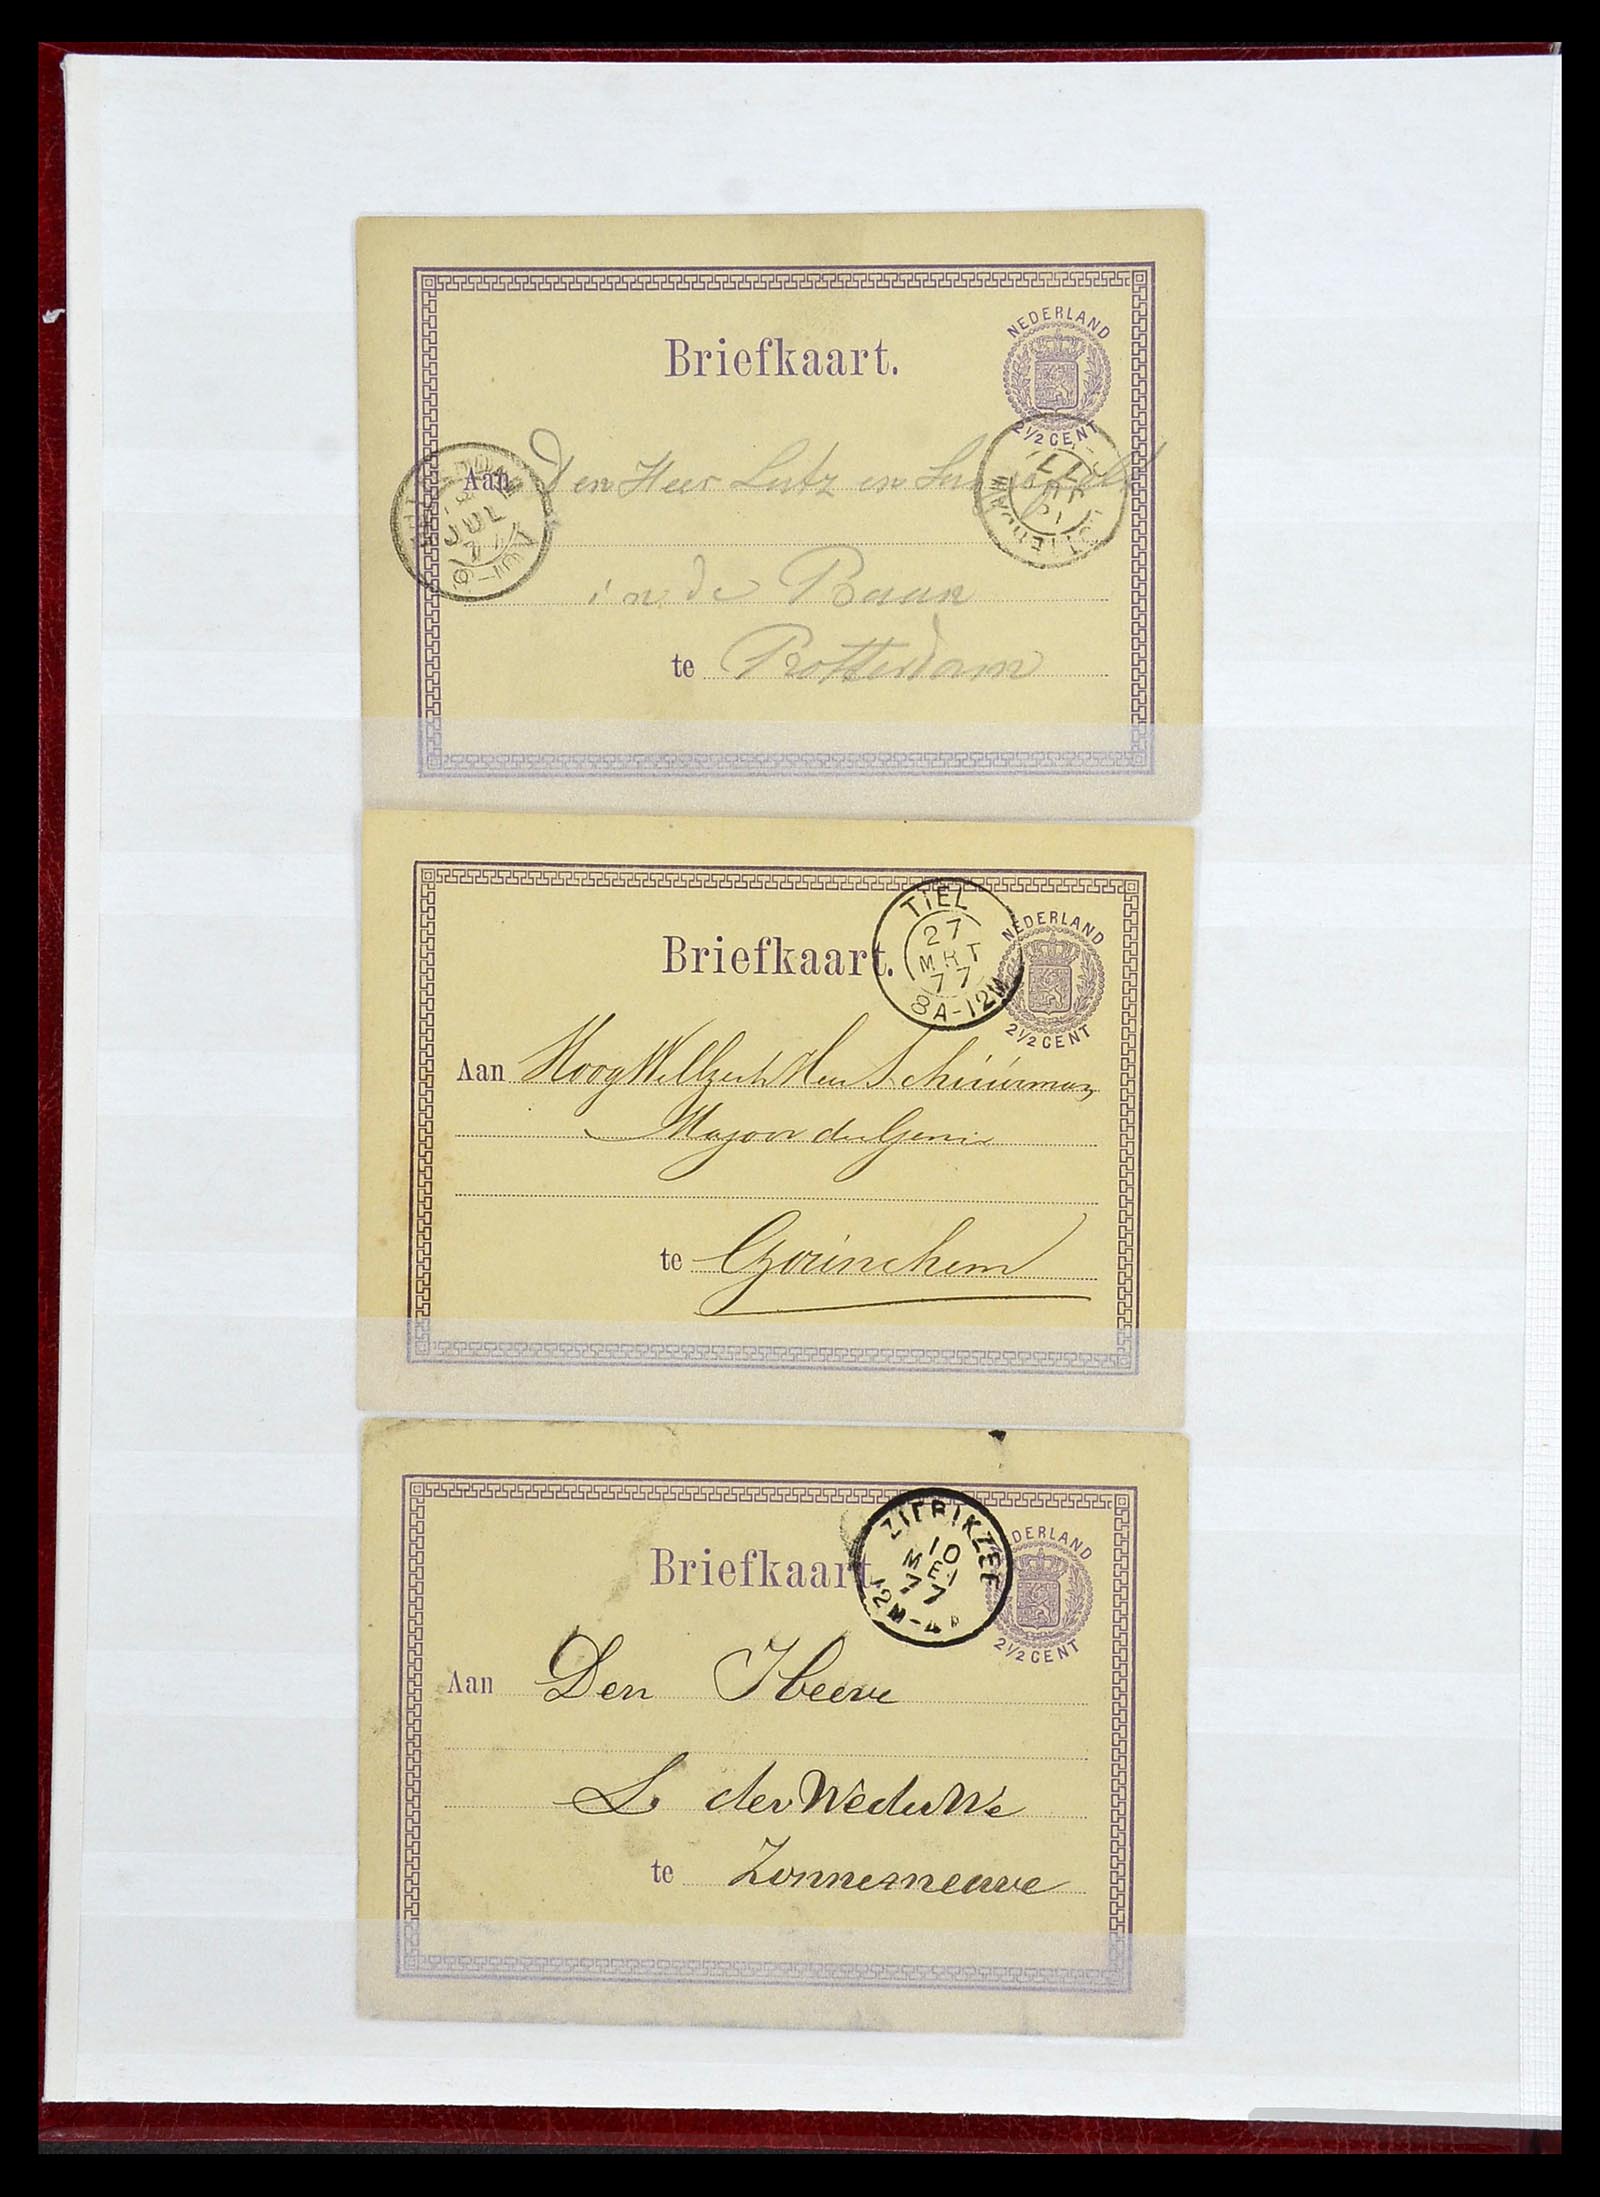 NEDERLAND
Briefkaart.
2½ CENT
Aan Den Heer Lutz en
JUL
77
in de Baan
te Rotterdam
TIEL
27
MRT
77
8A-12M
NEDERLAND
Briefkaart.
2½ CENT
Aan HoogWelEd Heer Schuurman
Majoor der Genie
te Gorinchem
ZIERIKZEE
10
MEI
77
12M-4A
NEDERLAND
Briefkaart
2½ CENT
Aan Den Heere
L. der Weduwe
te Zonnemeuve